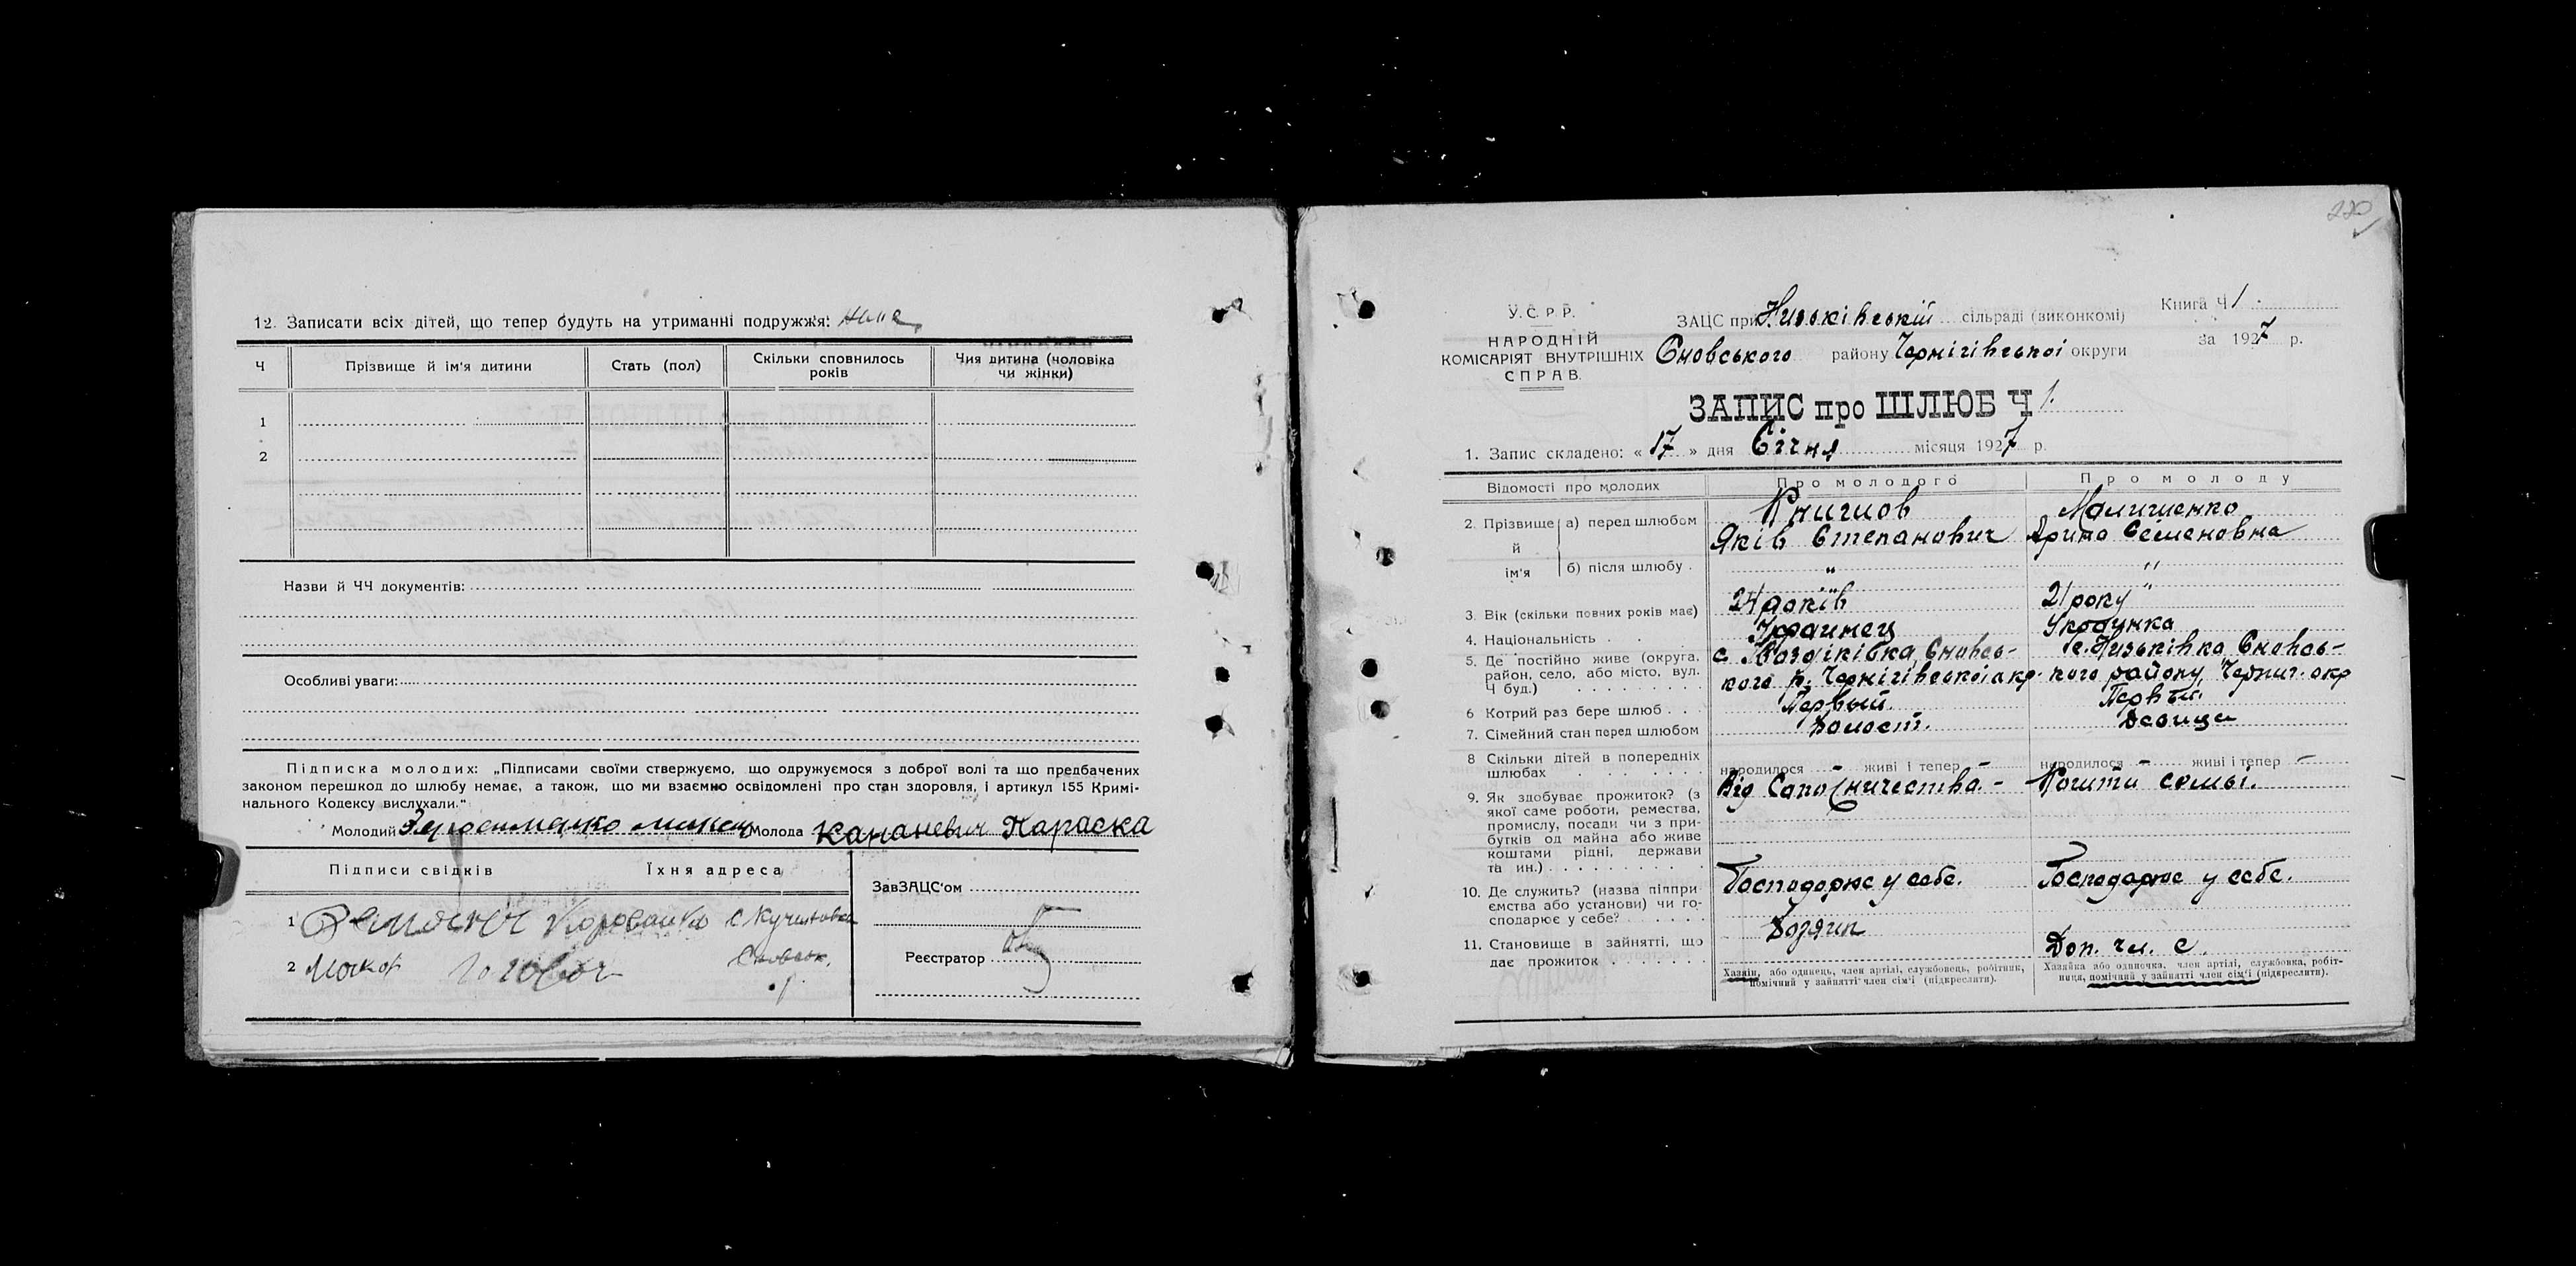 12. Записати всіх дітей, що тепер будуть на утриманні подружжя:
Ч Прізвище й ім'я дитини Стать (пол) Скільки сповнилось років Чия дитина (чоловіка чи жінки)
1
2
Назви й ЧЧ документів:
Особливі уваги:
Підписка молодих: „Підписами своїми ствержуємо, що одружуємося з доброї волі та що предбачених
законом перешкод до шлюбу немає, а також, що ми взаємно освідомлені про стан здоровля, і артикул 155 Кримі-
нального Кодексу вислухали."
Молодий Молода Кананевич Параска
Підписи свідків Їхня адреса
ЗавЗАЦС'ом
1 с Кучиновка
2 Сновськ.
Реєстратор
220
У.С.Р.Р.
НАРОДНІЙ
КОМІСАРІЯТ ВНУТРІШНІХ
СПРАВ.
ЗАЦС при Низьківській сільраді (виконкомі)
Сновського району Чернігівської округи
Книга Ч 1
За 1927 р.
ЗАПИС про ШЛЮБ Ч 1.
1. Запис складено: « 17 » дня Січня місяця 1927 р.
Відомості про молодих Про молодого Про молоду
2. Прізвище й ім'я а) перед шлюбом
Яків Степанович
Малишенко
Арина Семеновна
б) після шлюбу . " "
3. Вік (скільки повних років має) 24 років 21 року
4. Національність . .
5. Де постійно живе (округа, район, село, або місто, вул. Ч буд.)
с. Гвоздіківка, Сновсь-
кого р. Чернігівськоі окр.
с. Низьківка Сновсь-
кого району, Черниг. окр
6 Котрий раз бере шлюб . . Первый. Первый.
7. Сімейний стан перед шлюбом Холост. Девица
8 Скільки дітей в попередніх шлюбах
народилося – живі і тепер – народилося – живі і тепер –
9. Як здобуває прожиток? (з якої саме роботи, ремества, промислу, посади чи з прибутків од майна або живе коштами рідні, держави та ин.)
Від
10. Де служить? (назва підпри ємства або установи) чи господарює у себе?
Господарює у себе. Господарює у себе.
11. Становище в зайнятті, що дає прожиток
Хозяин
Доп. чл. с.
Хазяїн, або одинець, член артілі, службовець, робітник,
помічний у зайнятті член сім'ї (підкреслити).
Хазяйка або одиночка, член артілі, службовка, робіт-
ниця, помічний у зайнятті член сім'ї (підкреслити).